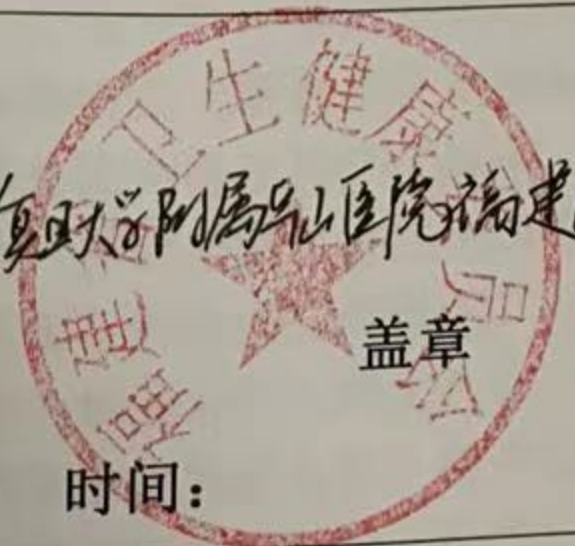 福建省卫生健康委员会
复旦大学附属华山医院福建
盖章
时间：